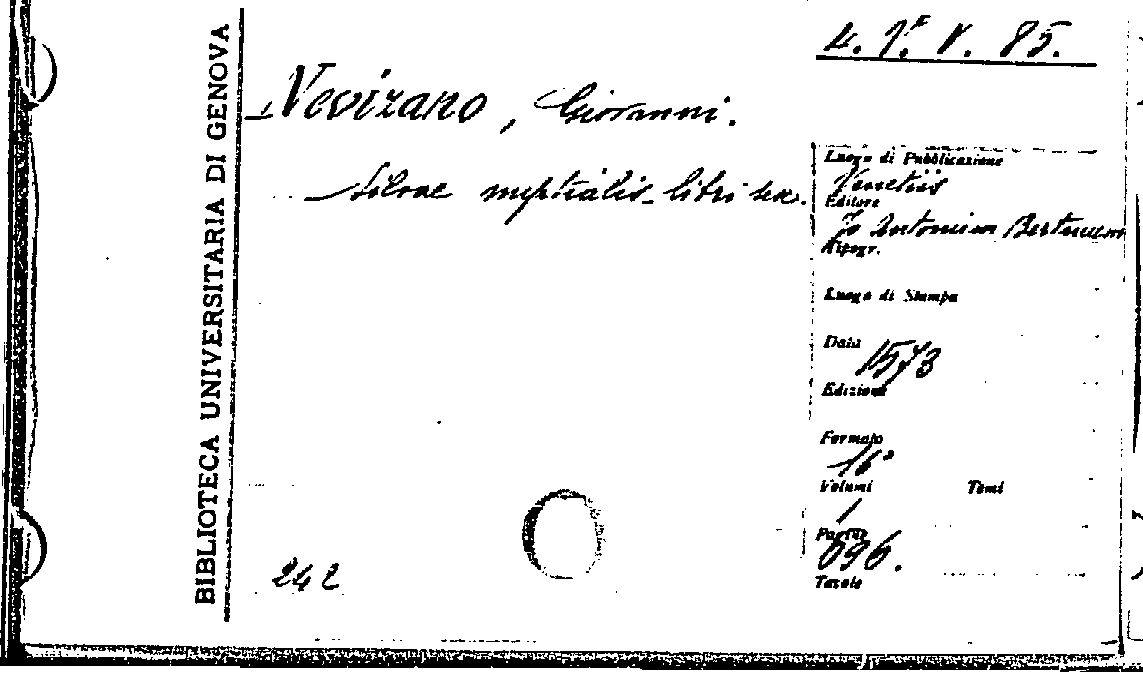 BIBLIOTECA UNIVERSITARIA DI GENOVA
Nevizano, Giovanni.
Silvae nuptialis libri sex.
242
Luogo di Pubblicazione
Venetiis
Editore
Jo Antonium Bertanum
Tipogr.
Luogo di Stampa
Data
1573
Edizione
Formato
16°
Volumi Tomi
1
Pagine
696.
Tavole